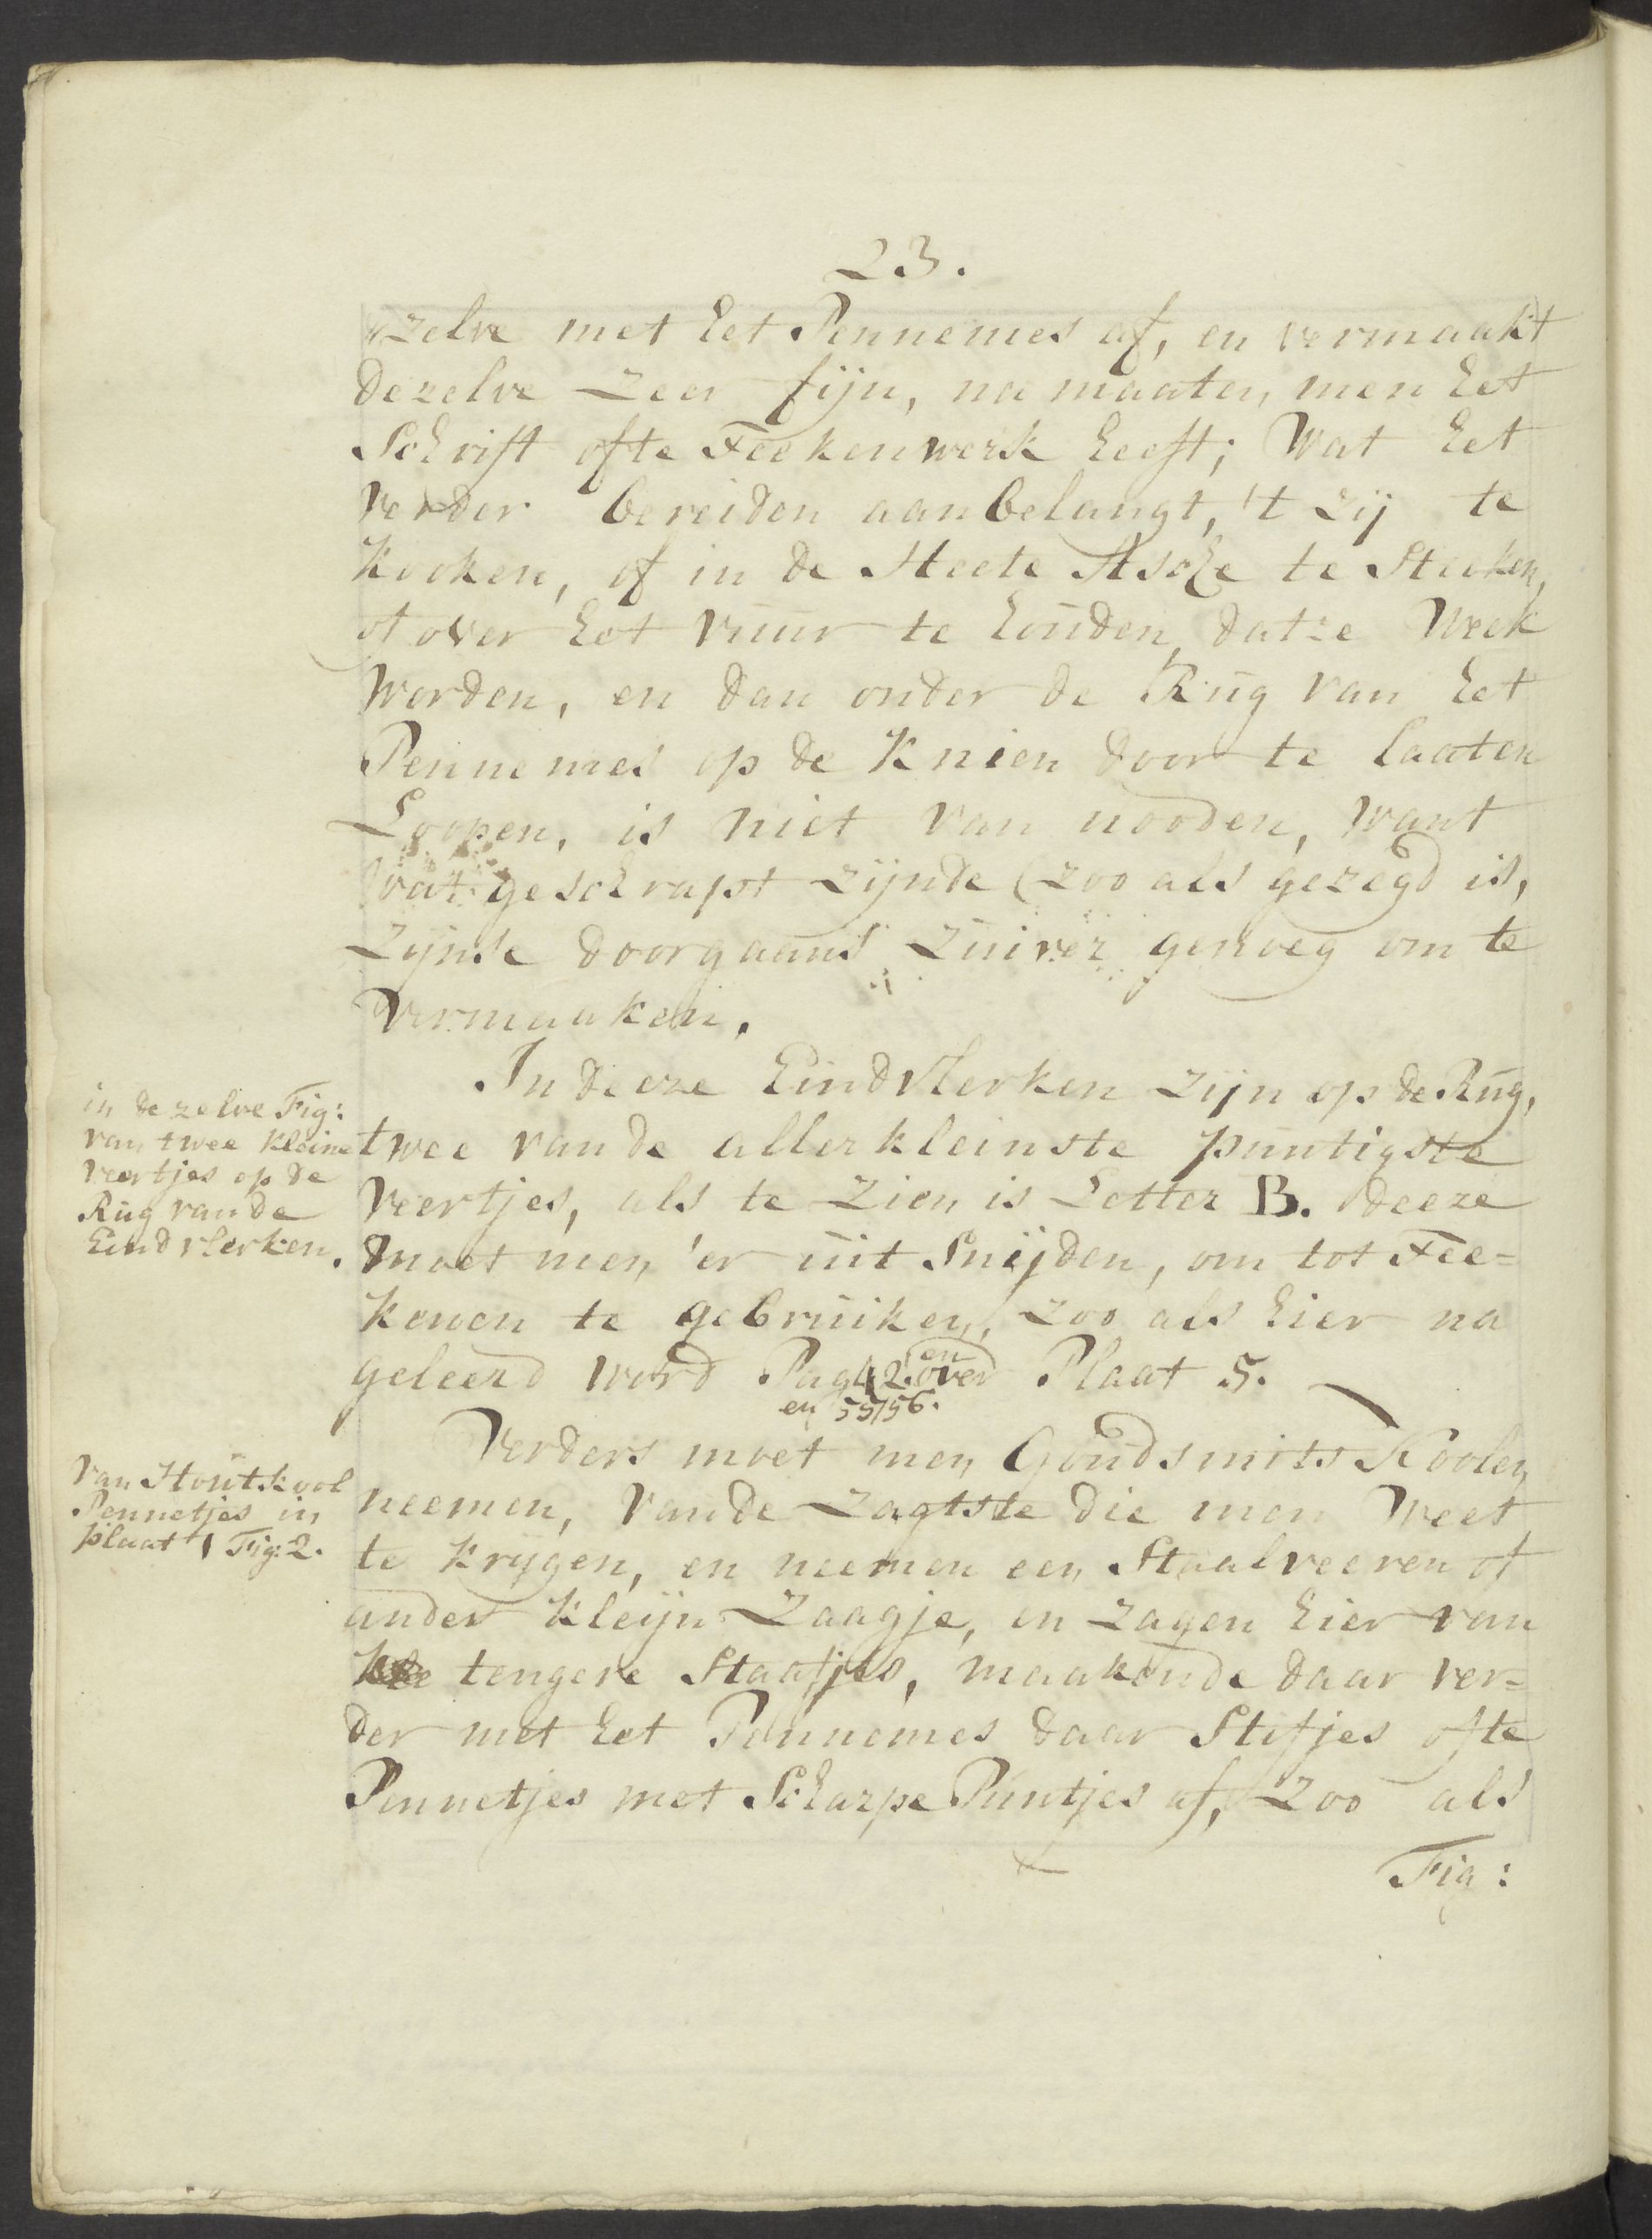 23.
zelve met het Pennemes af, en vermaakt
dezelve zeer fijn, na maaten men het
Schrift ofte Teekenwerk heeft; Wat het
verder bereiden aanbelangt, 't zij te
Kooken, of in de Heete Assche te Steeken,
of over het vuur te houden, datze Week
worden, en dan onder de Rug van het
Pennemes op de Knien door te laaten
Loopen, is niet van nooden, want
wat geschrapt zijnde (zoo als gezegd is,
zijnse doorgaans zuiver genoeg om te
vermaaken.
In deeze Eindvlerken zijn op de Rug,
in de zelve Fig:
van twee kleine
veertjes op de
Rug van de
Eindvlerken.
twee van de allerkleinste puntigste
veertjes, als te zien is Letter B. deeze
moet men 'er uit Snijden, om tot Tee=
kenen te gebruiken, zoo als hier na
geleerd word Pag 42. en over Plaat 5.
en 55/56.
Verders moet men Goudsmits Koolen
Van Houtskool
Pennetjes in
plaat 1 Fig: 2.
neemen, van de zagtste die men Weet
te krijgen, en neemen een Staalveeren of
ander kleijn Zaagje, en zagen hier van
tengere Staatjes, maakende daar ver=
der met het Pennemes daar Stifjes ofte
Pennetjes met Scharpe Puntjes af, zoo als
Fig: